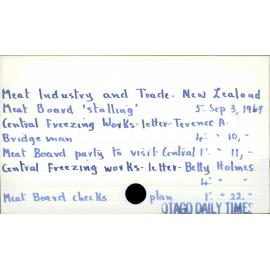 Meat Industry and Trade - New Zealand
Meat Board 'stalling' 5. Sep 3, 1969
Central Freezing Works - letter - Terence A.
Bridgeman 4: " 10, "
Meat Board party to visit Central 1: " 11, "
Central Freezing works - letter - Betty Holmes
4: " "
Meat Board checks plan 1: " 22. "
OTAGO DAILY TIMES